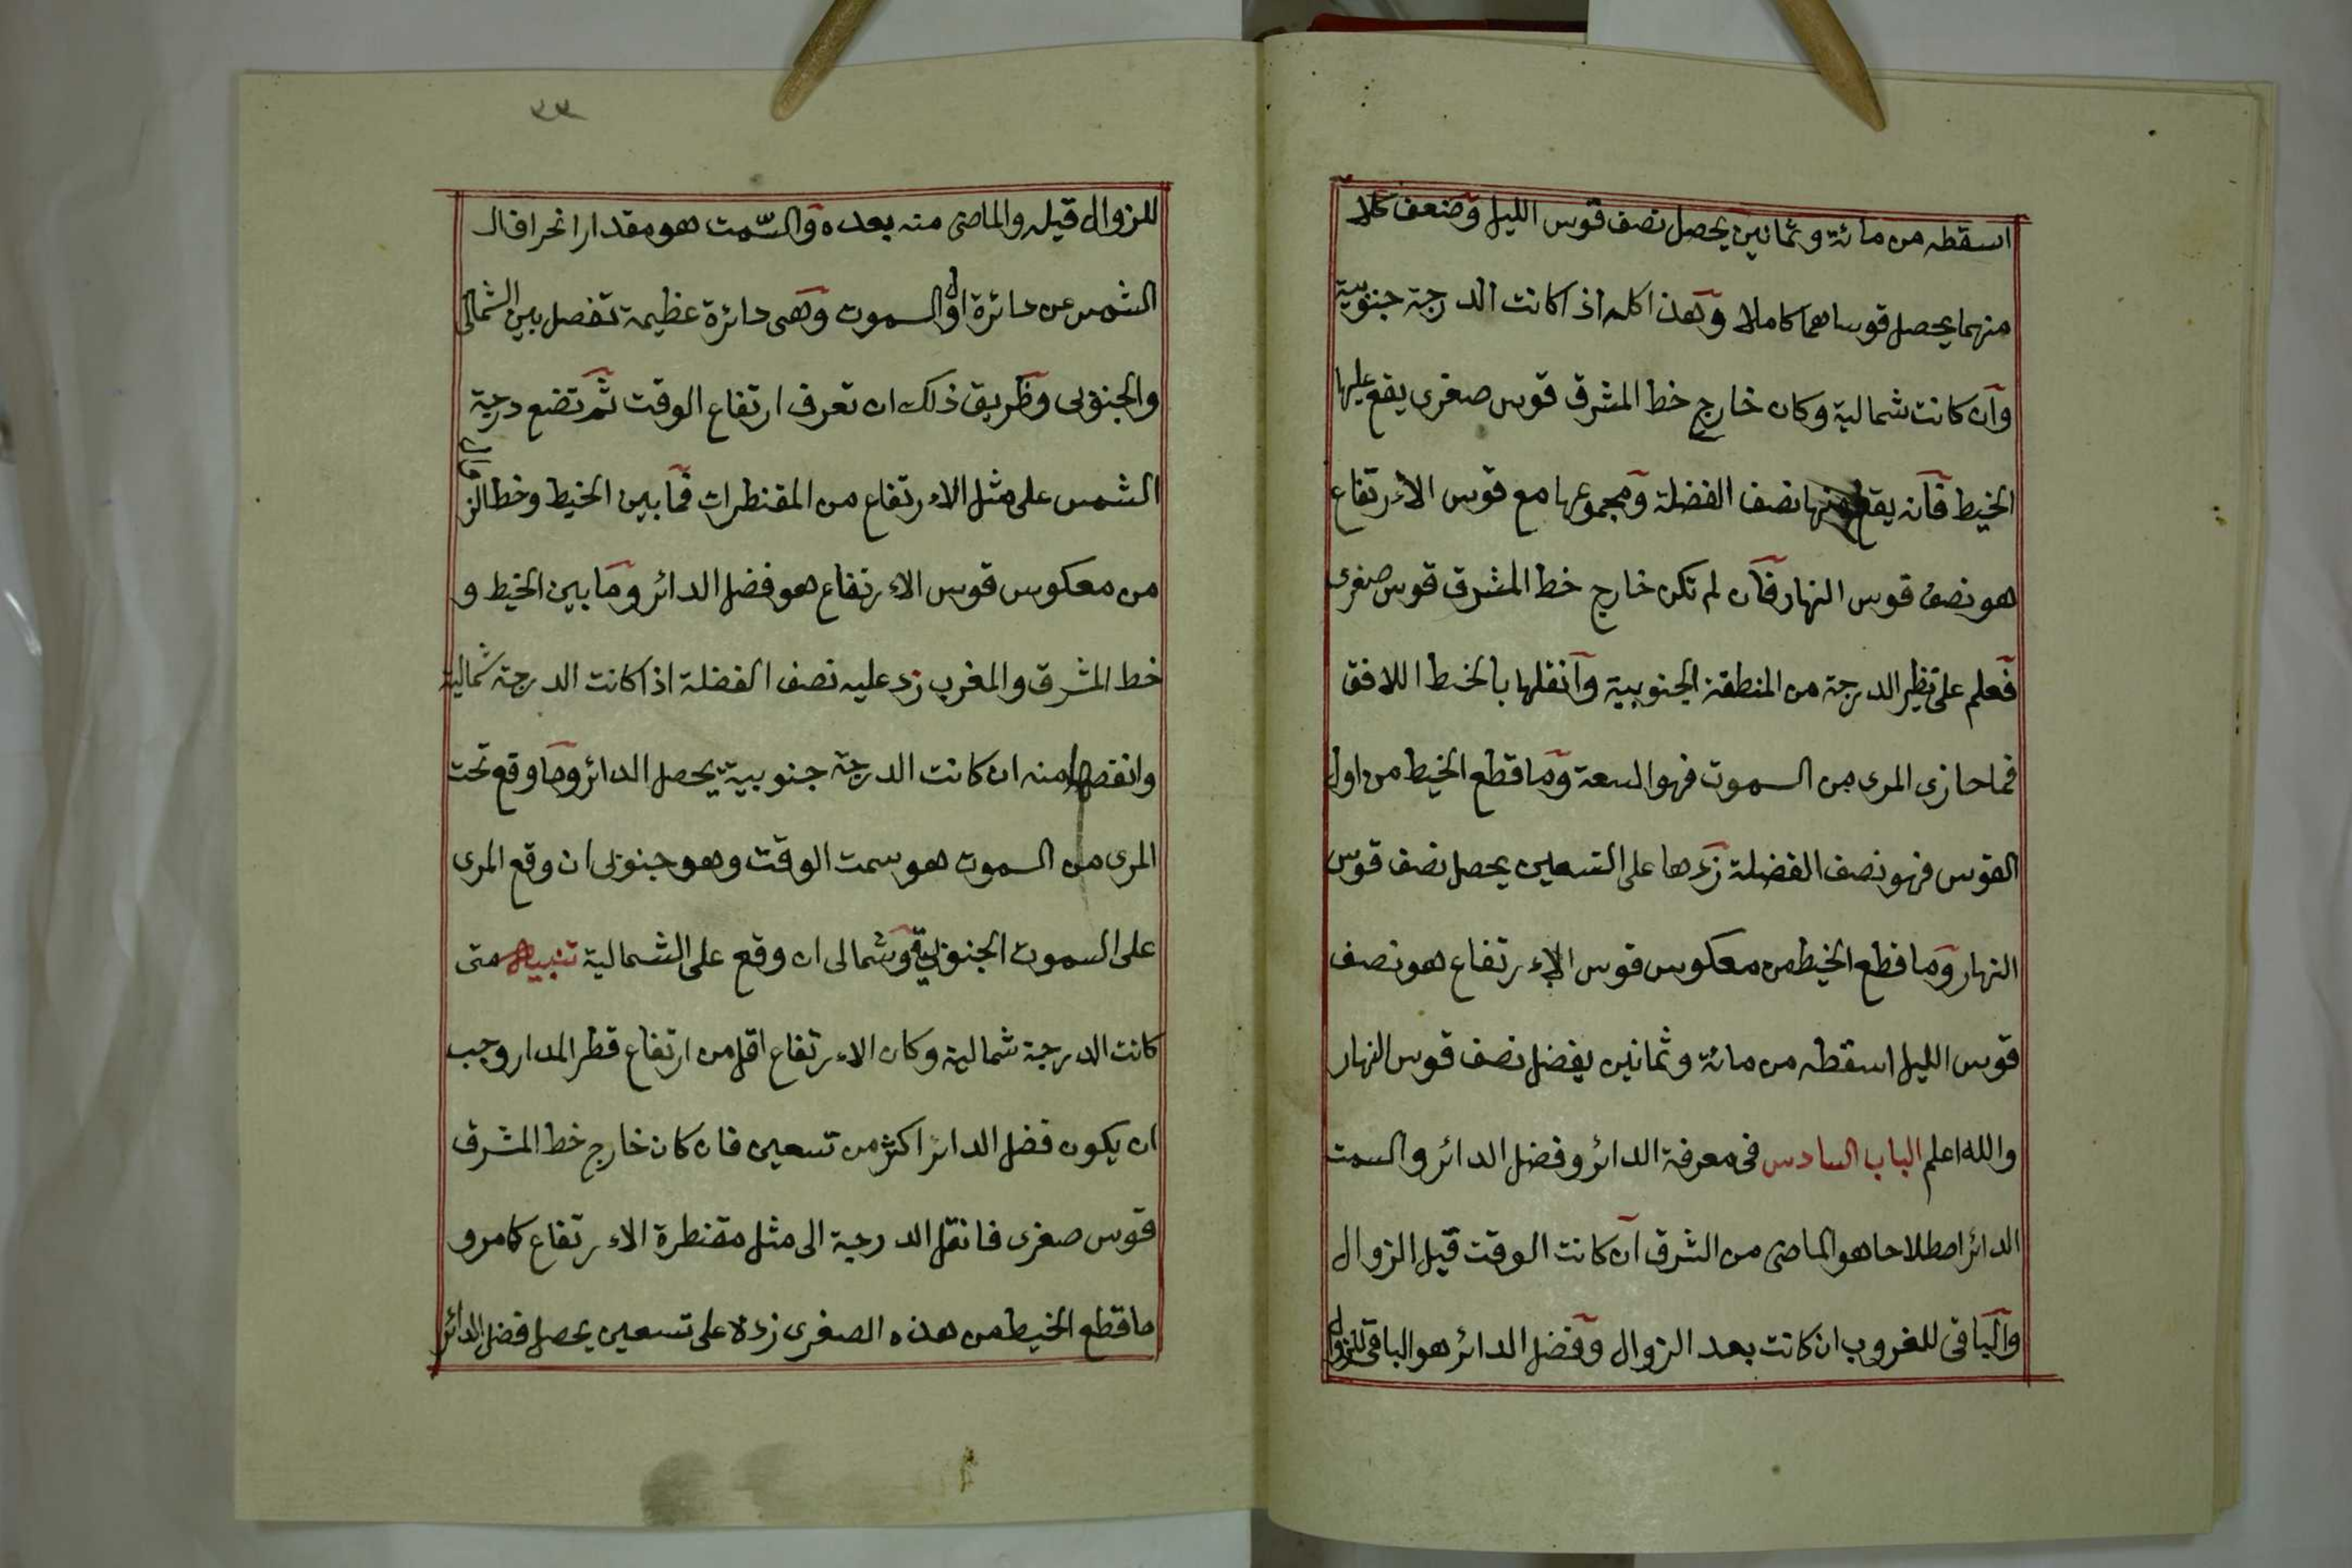 اسقطه من مائة وثمانين يحصل نصف قوس الليل وضعف كلا
منهما يحصل قوساهما كاملا وهذا كله اذا كانت الدرجة جنوبية
وان كانت شمالية وكان خارج خط المشرق قوس صغرى يقع عليها
الخيط فانه يقطع منها نصف الفضلة ومجموعها مع قوس الاءرتفاع
هو نصف قوس النهار فان لم تكن خارج خط المشرق قوس صغرى
فعلم على نظير الدرجة من المنطقة الجنوبية وانقلها بالخيط اللافق
فما حازى المرى من السموت فهو السعة وما قطع الخيط من اول
القوس فهو نصف الفضلة زدها على التسعين يحصل نصف قوس
النهار وما قطع الخيط من معكوس قوس الاءرتفاع هو نصف
قوس الليل اسقطه من مائة وثمانين يفضل نصف قوس النهار
والله اعلم الباب السادس فى معرفة الدائر وفضل الدائر والسمت
الدائر اصطلاحا هو الماضى من الشرق ان كانت الوقت قبل الزوال
والباقى للغروب ان كانت بعد الزوال وفضل الدائر هو الباقى للزوال
٣٣
للزوال قبله والماضى منه بعده والسّمت هو مقدار انحراف ال
الشمس عن دائرة اول السموت وهى دائرة عظيمة تفصل بين الشمالى
والجنوبى وطريق ذلك ان تعرف ارتفاع الوقت ثم تضع درجة
الشمس على مثل الاءرتفاع من المقنطرات فما بين الخيط وخط الزوال
من معكوس قوس الاءرتفاع هو فضل الدائر وما بين الخيط و
خط المشرق والمغرب زد عليه نصف الفضلة اذا كانت الدرجة شمالية
وانقصها منه ان كانت الدرجة جنوبية يحصل الدائر وما وقع تحت
المرى من السموت هو سمت الوقت وهو جنوبى ان وقع المرى
على السموت الجنوبية وشمالى ان وقع على الشمالية تنبيه متى
كانت الدرجة شمالية وكان الاءرتفاع اقل من ارتفاع قطر المدار وجب
ان يكون فضل الدائر اكثر من تسعين فان كان خارج خط المشرق
قوس صغرى فانقل الدرجة الى مثل مقنطرة الاءرتفاع كامر و
ما قطع الخيط من هذه الصغرى زده على تسعين يحصل فضل الدائر